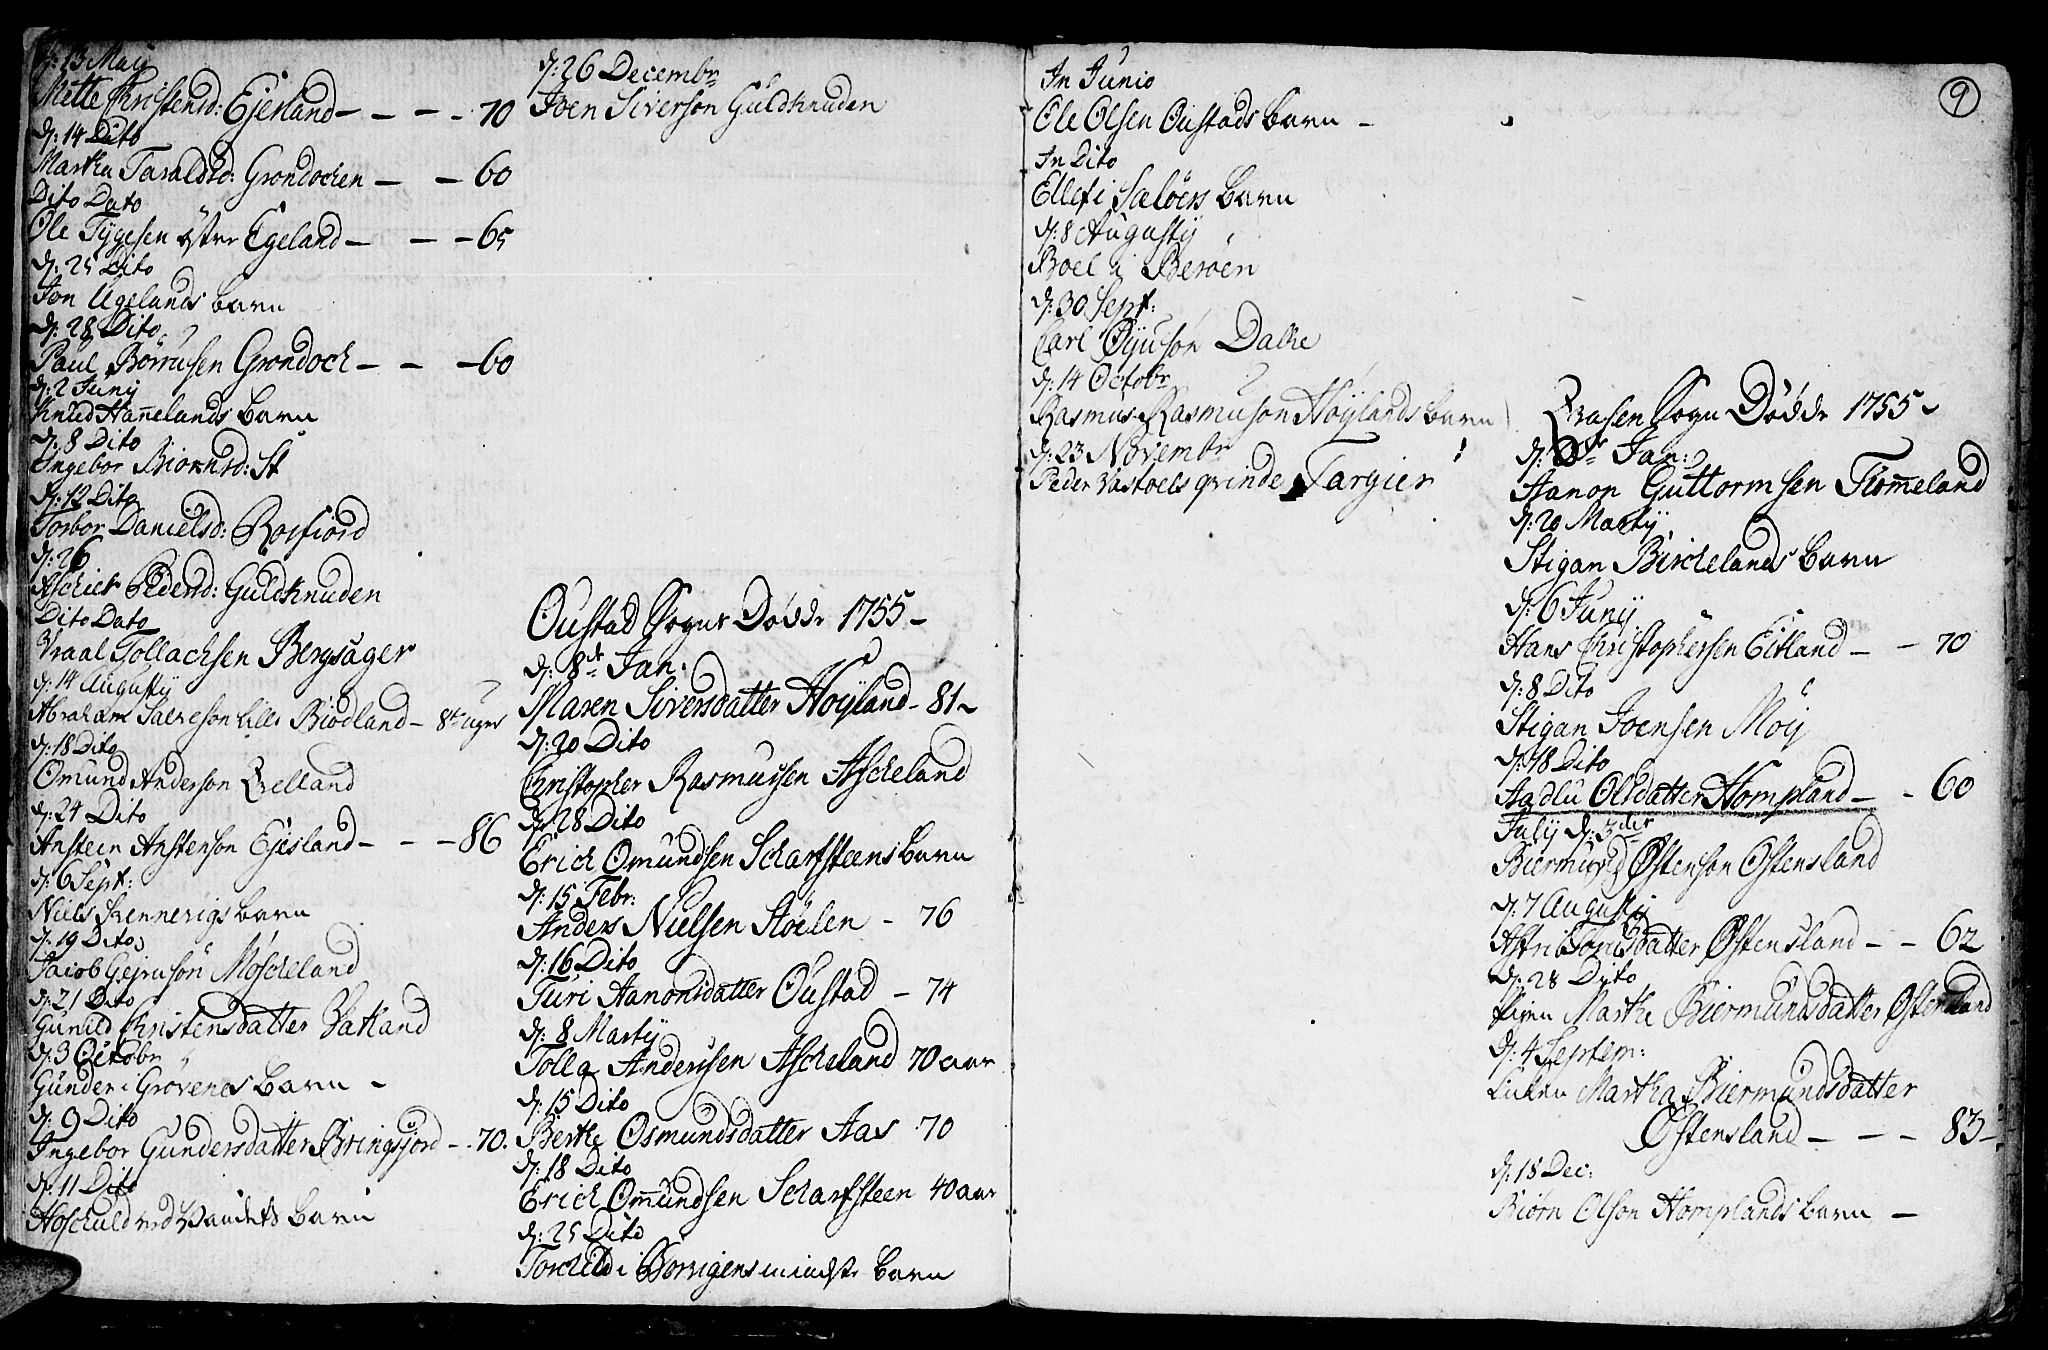 d: 13 Maij
Mette Christensd: Ejerland - - - - 70
d: 14 Dito
Martha Taraldsd: Grondochen - - 60
Dito Dato
Ole Tygesen østre Egeland - - - 65
d: 25 Dito
Jon Ugelands barn
d: 28 Dito
Paul Børrusen Grondoch - - - 60
d: 2 Junij
Knud Hannelands barn
d: 8 Dito
Ingebor Biornsd: St
d: 12 Dito
Torbor Danielsd: Rosfiord
d: 26
Aschier Pedersd: Guldknuden
Dito Dato
Vraal Tollachsen Bergsager
d: 14 Augustij
Abraham Salveson lille Biodland - 8t uger
d: 18 Dito
Omund Anderson Qvelland
d: 24 Dito
Ansteen Anstenson Ejesland - - - 86
d: 6 Sept:
Niels Rennerigs barn
d: 19 Dito
Jacob Gejruson Moscheland
d: 21 Dito
Gunild Christensdatter Vatland
d: 3 Octobr
Gunder i Grøvenes barn -
d: 9 Dito
Ingebor Gundersdatter Bringsjord - . 70.
d: 11 Dito
Hoschuld ved Vandets barn
d: 26 Decembr
Joen Siverson Guldknuden
Oustad Sogns Dødde 1755 -
d: 8de Jan:
Maren Siversdatter Høyland - 81 -
d: 20 Dito
Christopher Rasmussen Ascheland
d: 28 Dito
Erich Omundsen Scharfsteens barn
d: 15 Febr:
Anders Nielsen Støelen - 76
d: 16 Dito
Turi Aanonsdatter Oustad - 74
d: 8 Martij
Tolla Andersen Ascheland 70 aar
d: 15 Dito
Berthe Osmundsdatter Aas 70
d: 18 Dito
Erich Omundsen Scharfsteen 40 aar
d: 25 Dito
Torchild i Borrigens mindste barn
9
In Junio
Ole Olsen Oustads barn -
In Dito
Ellef i Sæløers barn
d: 8 Augustij
Boel i Berøen
d: 30 Sept:
Carl Øyuson Dalke
d: 14 Octobr
Rasmus Rasmuson Høylands barn
d: 23 Novembr
Peder Vastoels qvinde Targier
Qvasen Sogn Dødde 1755 -
Jan:
Aanon Guttormsen Flommeland
d: 20 Martij
Stigan Birchelands barn
d: 6 Junij
Hans Christophersen Eitland - - 70
d: 8 Dito
Stigan Joensen Moij
d: 18 Dito
Aadlu Olsdatter Hompland - - 60
Julij d: 3die
Biermund Østenson Ostensland
d: 7 Augustij
Astri Tonisdatter Østensland - - 62
d: 28 Dito
Pigen Martha Biermundsdatter Ostensland
d: 4 Septem:
Enken Martha Biermundsdatter
Østensland - - - 83 -
d: 18 Dec:
Biorn Olson Homplands barn -